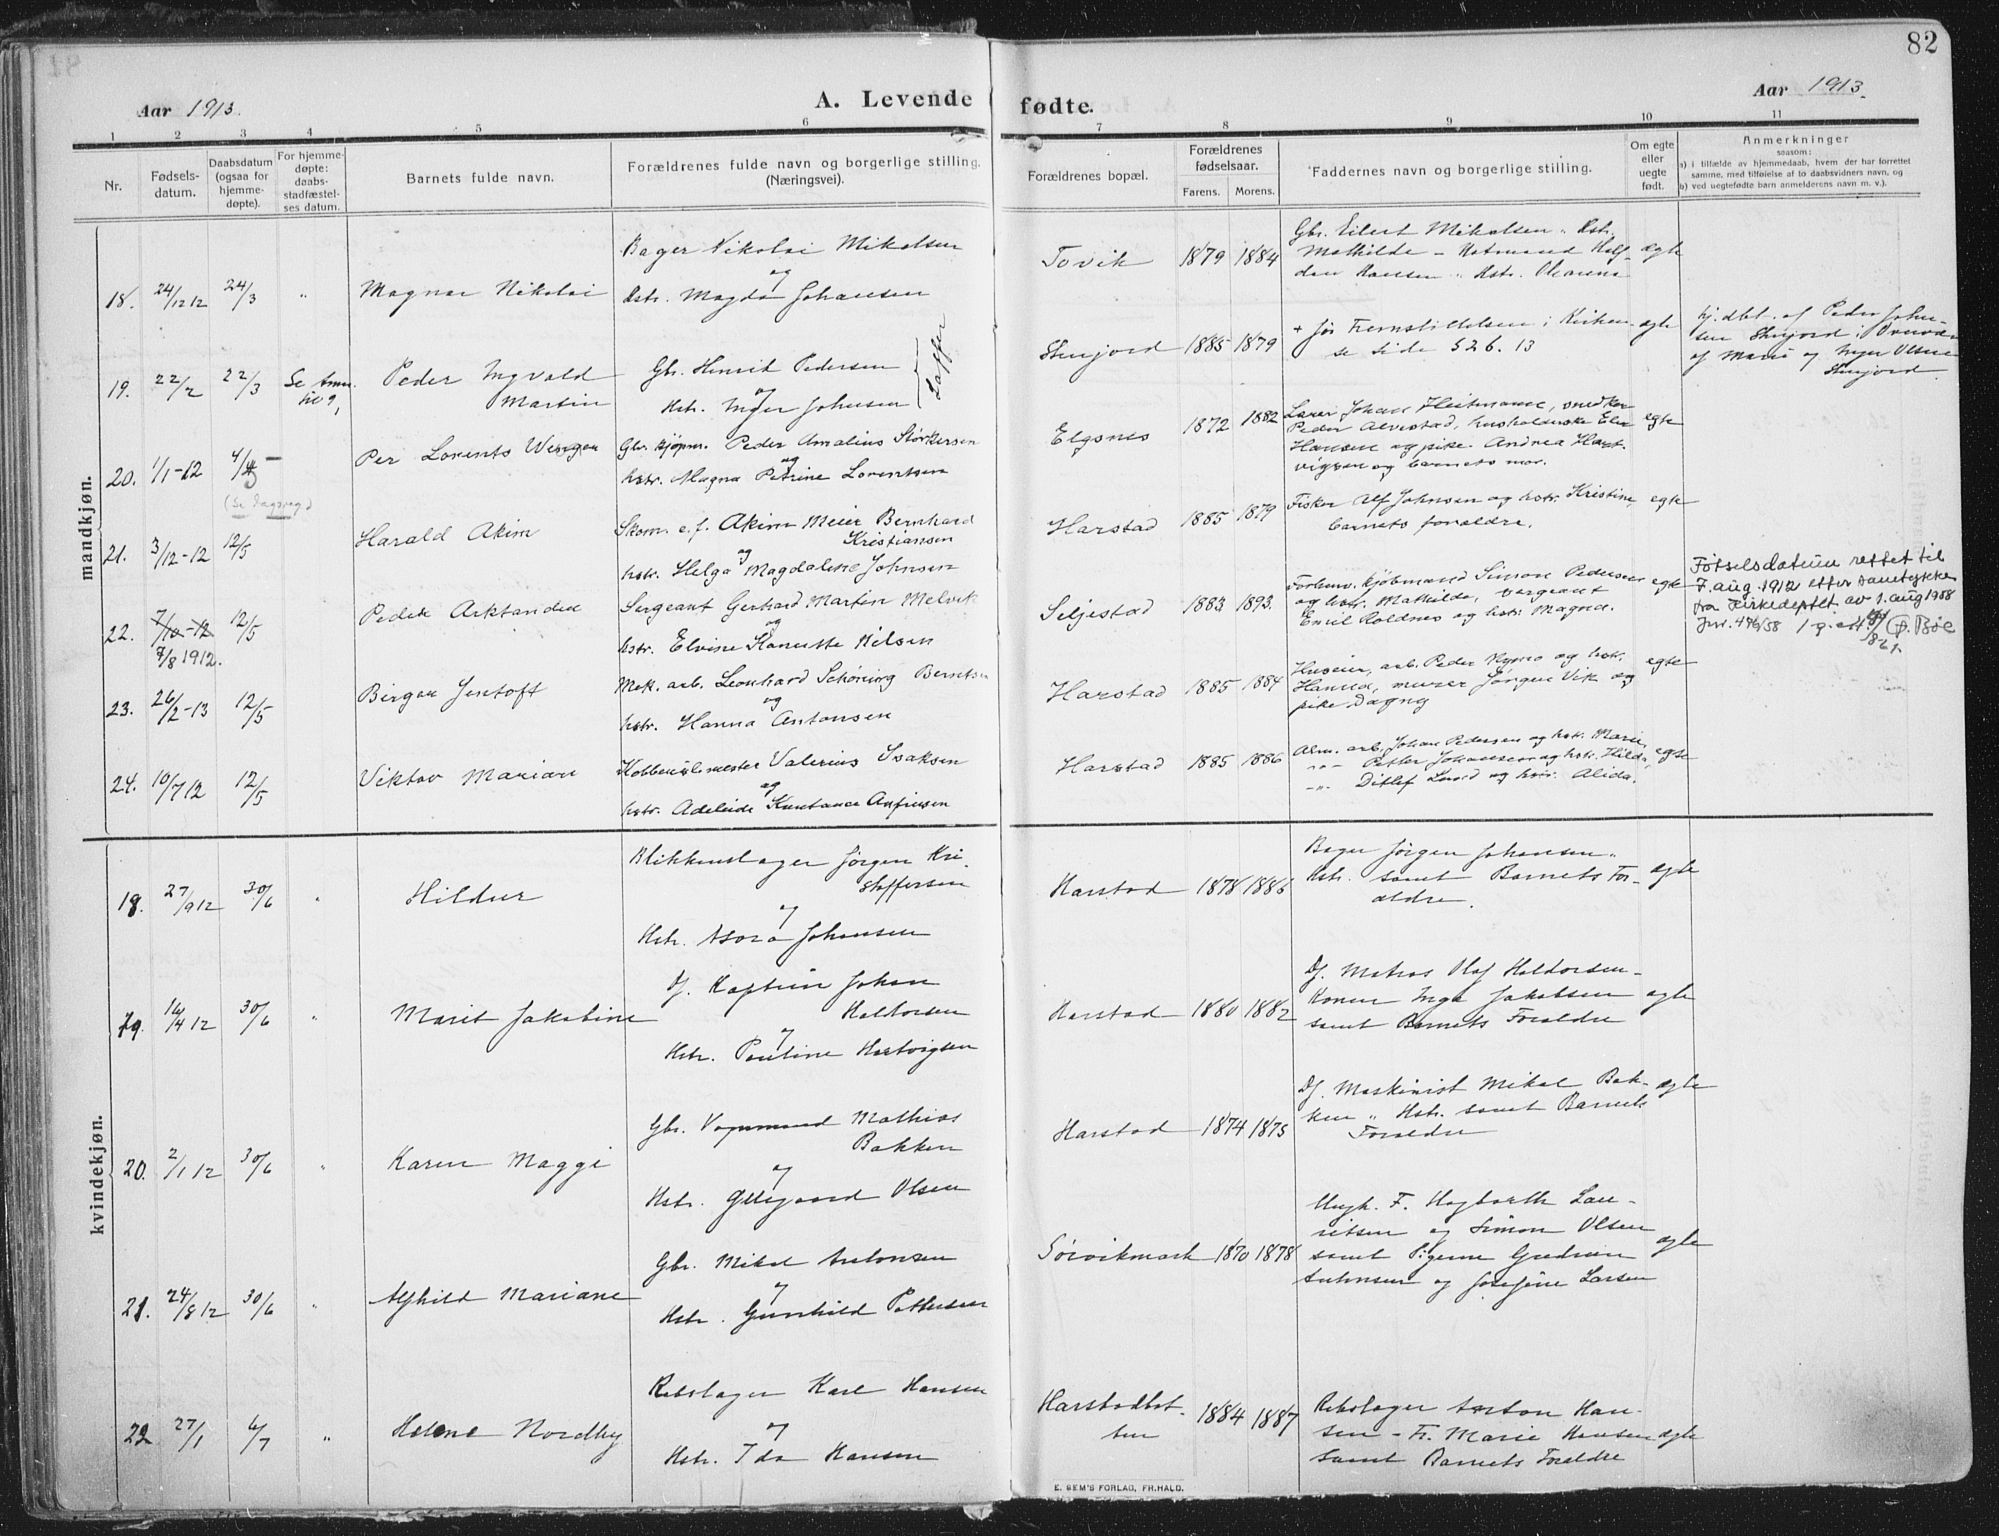 82
Aar 1913.
A. Levende fødte.
Aar 1913.
1 2 3 4 5 6 7 8 9 10 11
Nr.
Fødsels-
datum.
Daabsdatum
(ogsaa for
hjemme-
døpte).
For hjemme-
døpte:
daabs-
stadfæstel-
ses datum.
Barnets fulde navn.
Forældrenes fulde navn og borgerlige stilling.
(Næringsvei).
Forældrenes bopæl.
Forældrenes
fødselsaar.
Farens. Morens.
Faddernes navn og borgerlige stilling.
Om egte
eller
uegte
født.
Anmerkninger
saasom:
a) i tilfælde av hjemmedaab, hvem der har forrettet
samme, med tilføielse af to daabsvidners navn, og
b) ved uegtefødte barn anmelderens navn m. v.).
mandkjøn.
18. 24/12 12 24/3 " Magnar Nikolai
Bager Nikolai Mikalsen
og
Hstr. Magda Johansen
Tovik 1879 1884
Gbr. Eilert Mikalsen " Hstr.
Mathilde – Half-
dan Hansen " Hstr.
ægte
19. 22/2 22/3 Se Anm.
Peder Ingvald
Martin
Gbr. Henrik Pedersen
og
Hstr. Inger Johnsen
Stenjord 1885 1879
+ før Fremstillelsen i Kirken
se side 526. 13
ægte
hj. dbt. af Peder John-
sen Stenjord i Overvær
af Marie og Inger Olsen
Stenjord.
20. 1/1-12 4/5
(Se Dagsreg)
Per Lorents
Gbr. kjøpm. Peder Amalius Størkersen
og
hstr. Magna Petrine Lorentsen
Elgsnes 1872 1882
Lærer Johan Heitmann, snedker
Peder Alvestad, husholderske
Hansen og pike. Andrea Hart-
vigsen og barnets mor.
egte
21. 3/12-12 12/5 Harald Akim
Skom. e.f. Akim Meier Bernhard
Kristiansen
og
hstr. Helga Magdalene Johnsen
Harstad 1885 1879
Fisker Alf Johnsen og hstr. Kristine,
barnets forældre.
egte
22. 7/10-12 12/5
7/8 1912.
Peder Arktander
Sergeant Gerhard Martin Melvik
og
hstr. Elvine Hanette Nilsen
Seljestad 1883 1893.
Forhenv. kjøbmand Simon Pedersen
og hstr. Mathilde, sergeant
Emil Roldnes og hstr. Magna.
egte
Fødselsdatum rettet til
7. aug. 1912 etter samtykke
fra Kirkedeptet av 1. aug 1958
Jnr. 476/58
Bøe
23. 26/2-13 12/5 Birger Jentoft
Mek. arb. Leonhard Schøning Berntsen
og
hstr. Hanna Antonsen
Harstad 1885 1884
Huseier, arb. Peder og hstr.
Hanna, murer Jørgen Vik og
pike Dagny
egte
24. 10/7 12 12/5 Viktor Marian
Valerius Isaksen
og
hstr. Adeleide Konstance Anfinsen
Harstad 1885 1886
Alm. arb. Johan Pedersen og hstr. Marie,
-"- Petter Johansen og hstr. Hilda,
-"- Ditlef Lund og hstr. Alida.
egte
kvindekjøn.
18. 27/9 12 30/6 " Hildur
Blikkenslager Jørgen Kri-
stoffersen
og
Hstr. Asora Johansen
Harstad 1878 1886
Bager Jørgen Johansen "
Hstr. samt Barnets For-
ældre.
ægte
19. 16/4 12 30/6 " Marit Jakobine
Df. Kaptein Johan
Haldorsen
og
Hstr. Pauline Hartvigsen
Harstad 1880 1882
Df. Matros Olaf Haldorsen –
Konen Inga Jakobsen
samt Barnets Forældre
ægte
20. 2/1 12 30/6 " Karen Maggi
Gbr. Vognmand Mathias
Bakken
og
Hstr. Olsen
Harstad 1874 1875
Df. Maskinist Mikal Bak-
ken " Hstr. samt Barnets
Forældre
ægte
21. 24/8 12 30/6 " Alfhild Mariane
Gbr. Mikal Antonsen
og
Hstr. Gunhild Pettersen
Sørvikmark 1870 1878
Ungk. F. Hagbarth Lau-
ritsen og Simon Olsen
samt Pigerne Gudrun
Antonsen og Josefine Larsen
ægte
22 27/1 6/7 " Helene Nordby
Rebslager Karl Hansen
og
Hstr. Ida Hansen
Harstadbot-
ten
1884 1887
Rebslager Anton Han-
sen – Fr. Marie Hansen
samt Barnets Forældre
ægte
E. SEM'S FORLAG, FR.HALD.